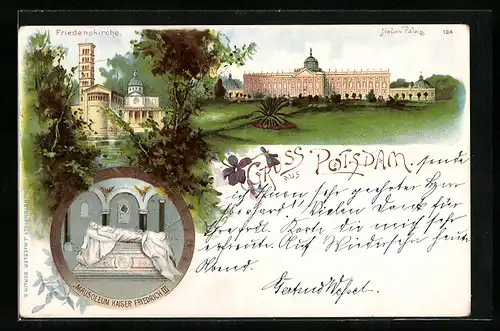 Friedenskirche.
Neues Palais
124
GRUSS AUS POTSDAM. sende
ich Ihnen sehr geehrter Herr
Eberhardt! Vielen Dank für
Karte die mich sehr
erfreute. Auf Wiedersehn heute
Abend.
Gertrud
MAUSOLEUM KAISER FRIEDRICH III